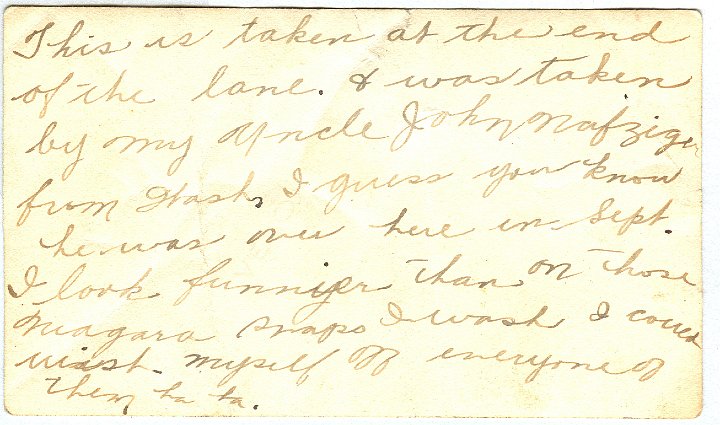 This is taken at the end
of the lane. & was taken
by my Uncle John Nafziger
from Wash, I guess you know
he was over here in Sept.
I look funnier than on those
Niagara snaps I wash I could
wash myself off everyone of
them ha ha.